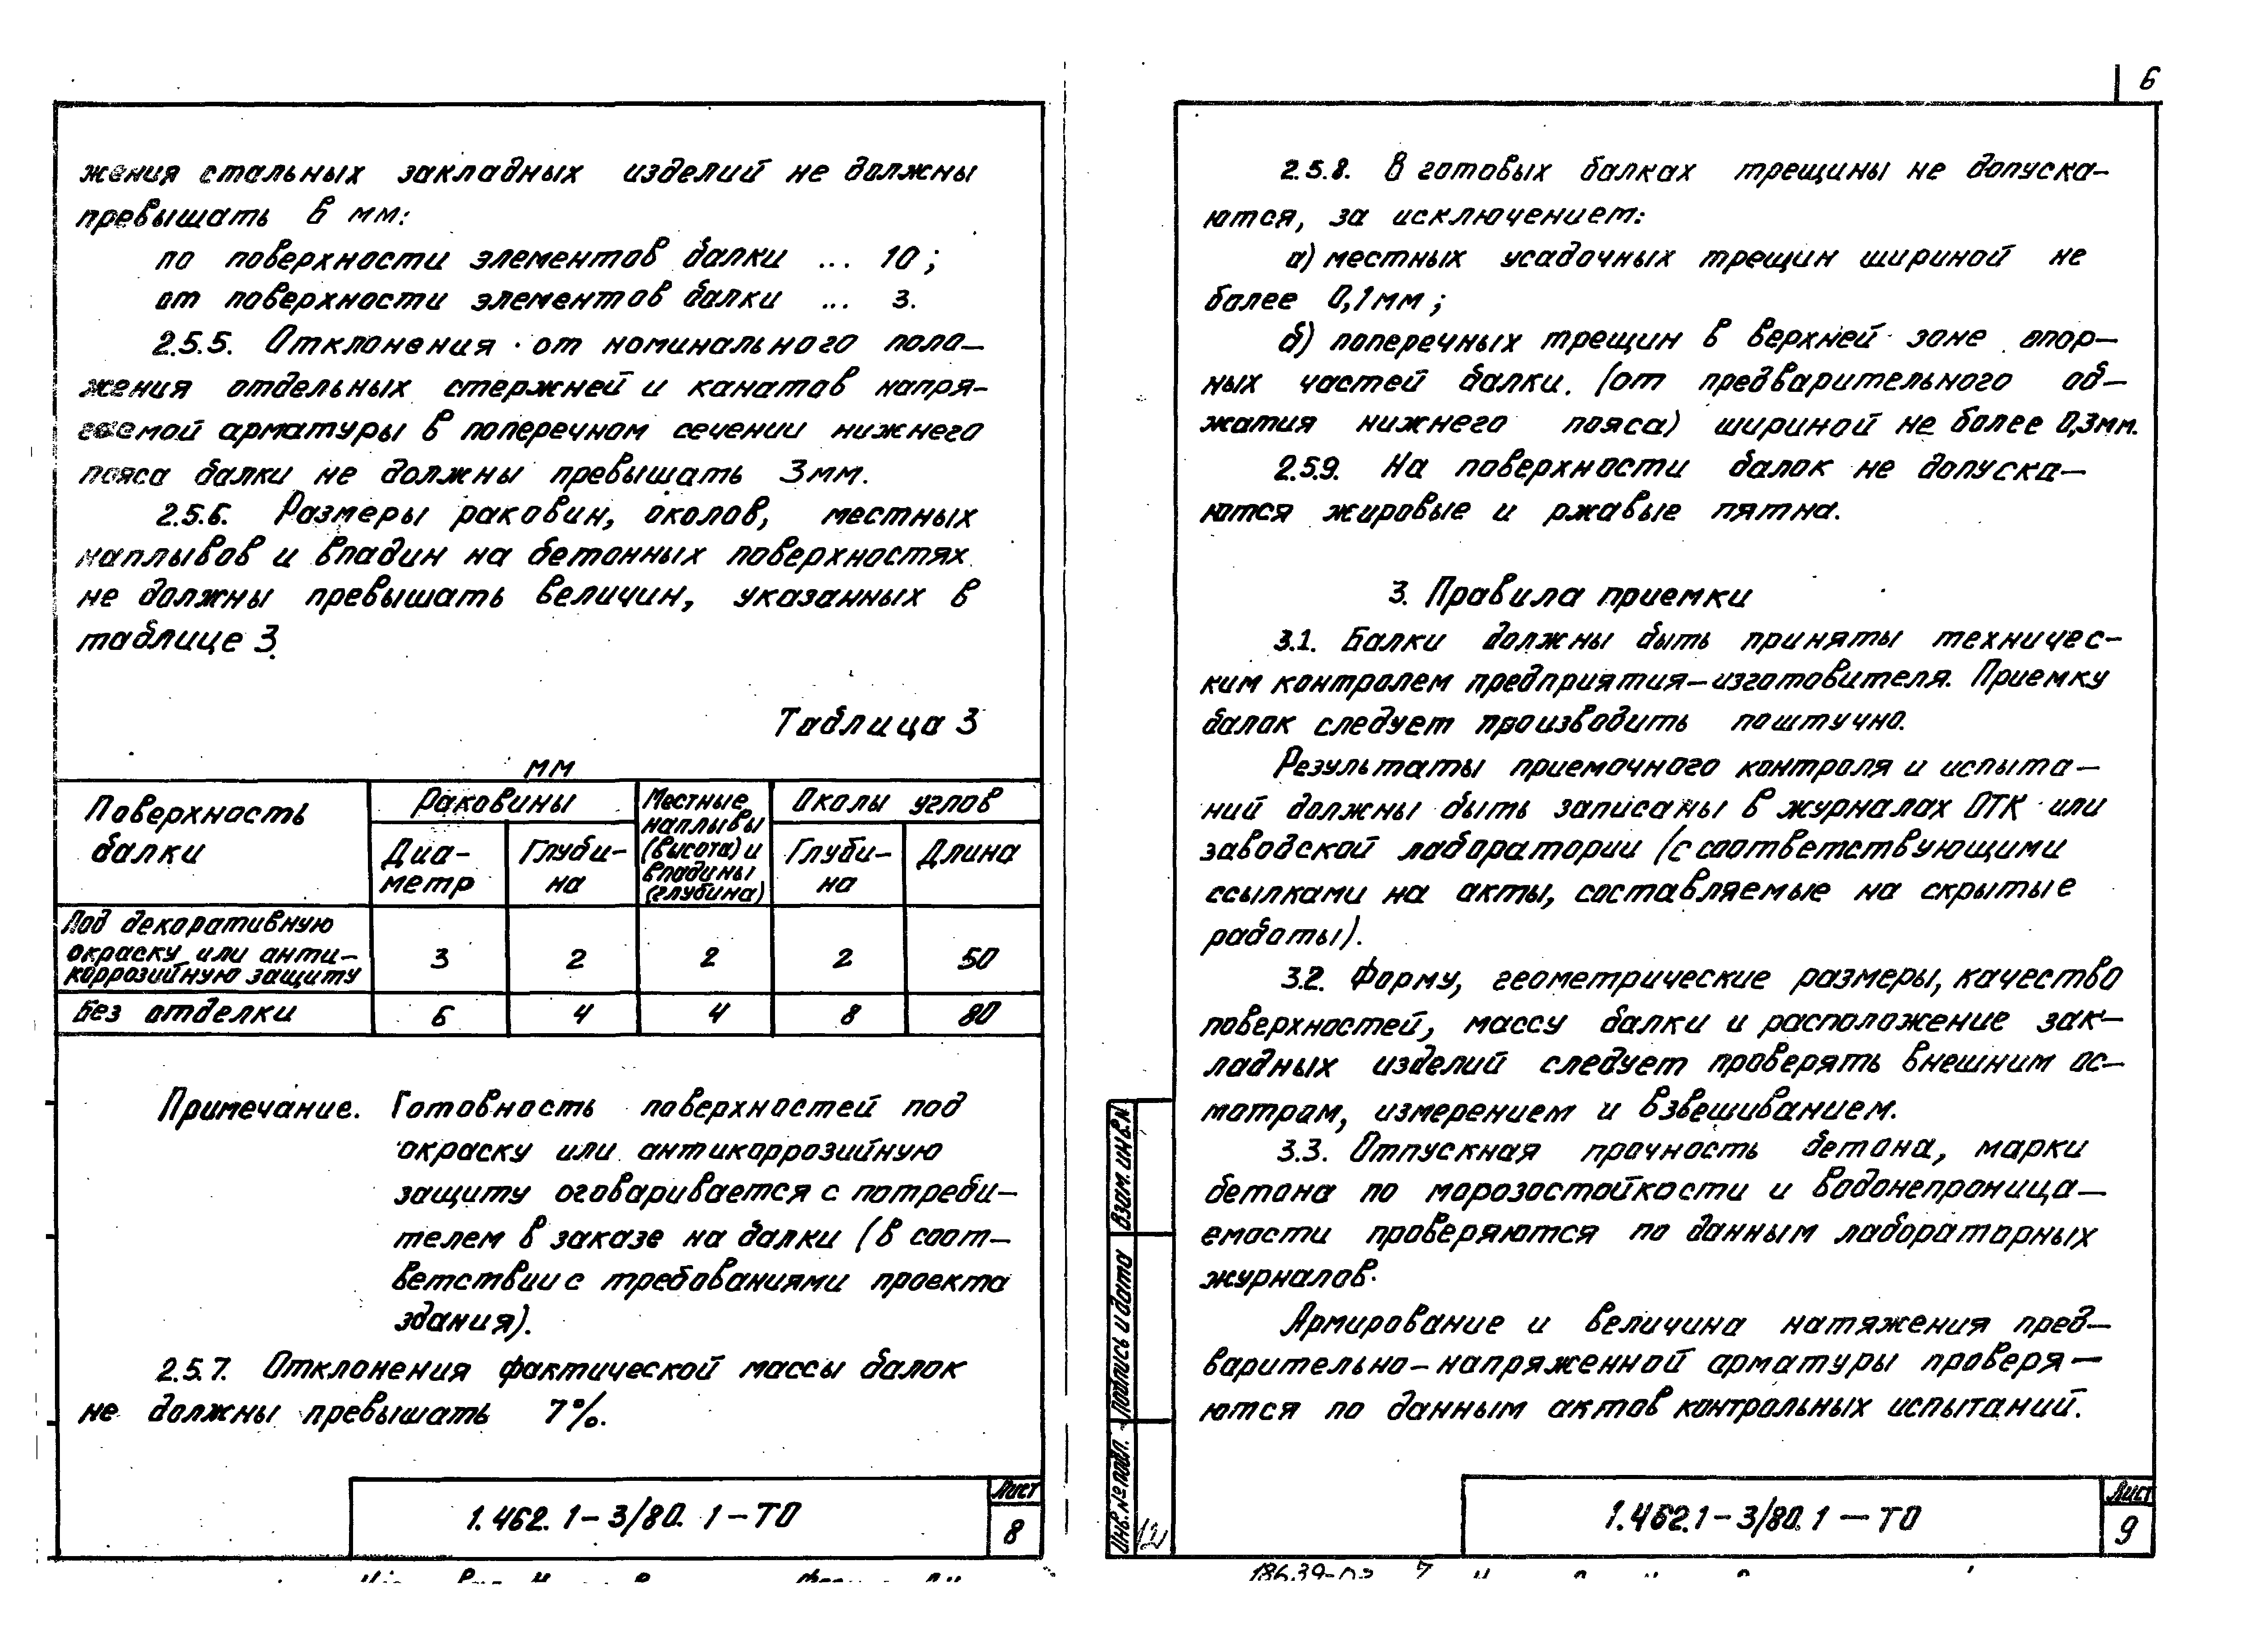 жения стальных закладных изделий не должны
превышать в мм:
по поверхности элементов балки ... 10;
от поверхности элементов балки ... 3.
2.5.5. Отклонения от номинального поло-
жения отдельных стержней и канатов напря-
гаемой арматуры в поперечном сечении нижнего
пояса балки не должны превышать 3мм.
2.5.6. Размеры раковин, околов, местных
наплывов и впадин на бетонных поверхностях
не должны превышать величин, указанных в
таблице 3.
Таблица 3
мм
Поверхность балки
Раковины
Местные наплывы (высота) и впадины (глубина)
Околы углов
Диа-метр
Глуби-на
Глуби-на
Длина
Под декоративную
окраску или анти-
коррозийную защиту
3 2 2 2 50
Без отделки 6 4 4 8 80
Примечание. Готовность поверхностей под
окраску или антикоррозийную
защиту оговаривается с потреби-
телем в заказе на балки (в соот-
ветствии с требованиями проекта
здания).
2.5.7. Отклонения фактической массы балок
не должны превышать 7%.
1.462.1-3/80.1-ТО
Лист
8
6
2.5.8. В готовых балках трещины не допуска-
ются, за исключением:
а) местных усадочных трещин шириной не
более 0,1мм;
б) поперечных трещин в верхней зоне опор-
ных частей балки. (от предварительного об-
жатия нижнего пояса) шириной не более 0,3мм.
2.5.9. На поверхности балок не допуска-
ются жировые и ржавые пятна.
3. Правила приемки
3.1. Балки должны быть приняты техничес-
ким контролем предприятия-изготовителя. Приемку
балок следует производить поштучно.
Результаты приемочного контроля и испыта-
ний должны быть записаны в журналах ОТК или
заводской лаборатории (с соответствующими
ссылками на акты, составляемые на скрытые
работы).
3.2. Форму, геометрические размеры, качество
поверхностей, массу балки и расположение зак-
ладных изделий следует проверять внешним ос-
мотром, измерением и взвешиванием.
3.3. Отпускная прочность бетона, марки
бетона по морозостойкости и водонепроница-
емости проверяются по данным лабораторных
журналов.
Армирование и величина натяжения пред-
варительно-напряженной арматуры проверя-
ются по данным актов контрольных испытаний.
Взам. инв.№
Подпись и дата
Инв.№ подл.
1.462.1-3/80.1-ТО
Лист
9